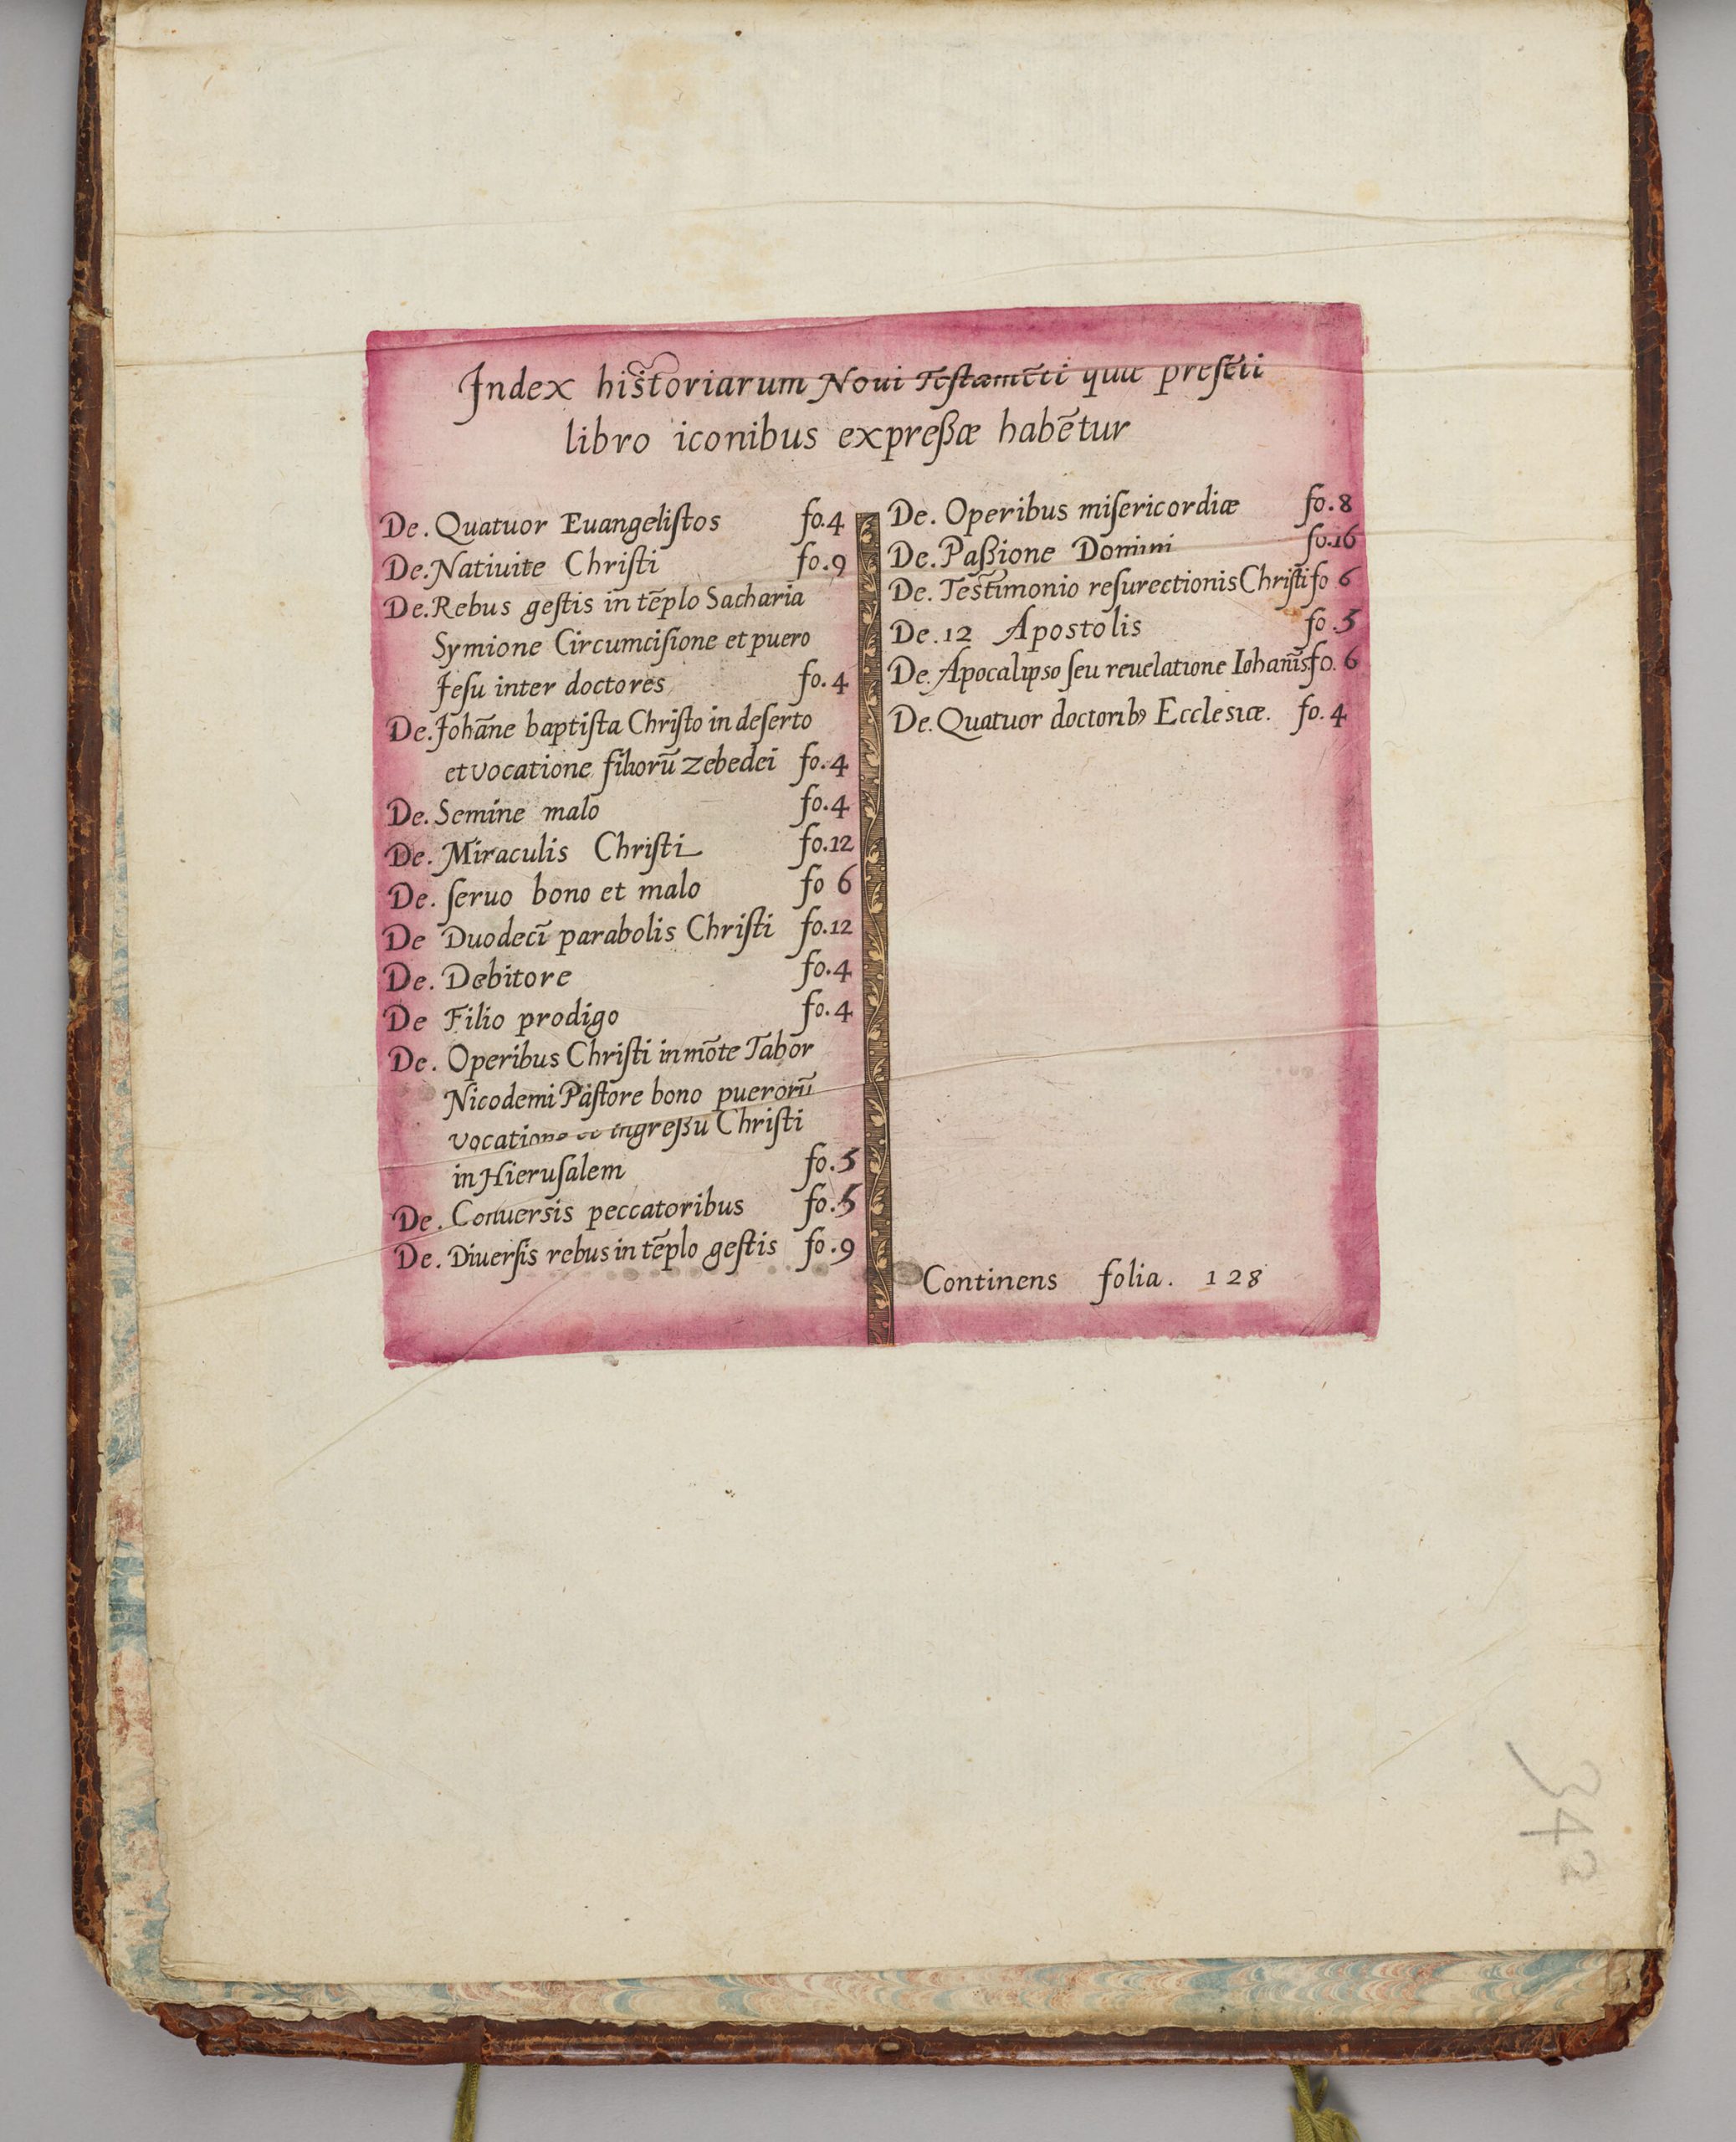 Index hiſtoriarum Noui Teſtamẽti quæ preſẽti
libro iconibus expreßæ habẽtur
De. Quatuor Euangeliſtos fo.4
De. Natiuite Chriſti fo.9
De. Rebus geſtis in tẽplo Sacharia
Symione Circumciſione et puero
Jeſu inter doctores fo.4
De. Johãne baptiſta Chriſto in deſerto
et vocatione filiorũ zebedei fo.4
De. Semine malo fo.4
De. Miraculis Chriſti fo.12
De. ſeruo bono et malo fo 6
De Duodecĩ parabolis Chriſti fo.12
De. Debitore fo.4
De Filio prodigo fo.4
De. Operibus Chriſti in mõte Tabor
Nicodemi Paſtore bono puerorũ
vocatione et ingreßu Chriſti
in Hieruſalem fo.5
De. Conuersis peccatoribus fo.5
De. Diuerſis rebus in tẽplo geſtis fo.9
De. Operibus miſericordiæ fo.8
De. Paßione Domini fo.16
De. Teſtimonio reſurectionis Chriſti fo 6
De. 12 Apostolis fo.5
De. Apocalipso ſeu reuelatione Iohanĩs fo. 6
De. Quatuor doctoribꝰ Ecclesiæ. fo. 4
Continens folia. 128
343